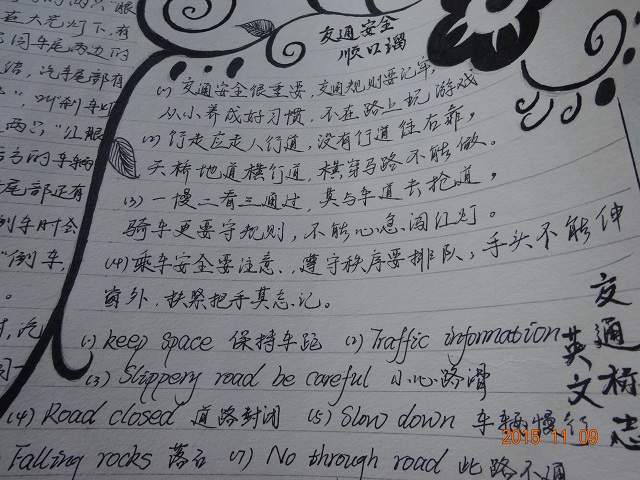 交通安全
顺口溜
(1) 交通安全很重要,交通规则要记牢,
从小养成好习惯,不在路上玩游戏
(2) 行走应走人行道,没有行道往右靠,
天桥地道横行道,横穿马路不能做。
(3) 一慢二看三通过,莫与车道去抢道,
骑车更要守规则,不能心急闯红灯。
(4) 乘车安全要注意,遵守秩序要排队,手头不能伸
窗外,扶紧把手莫忘记。
交通标志
英文
(1) keep space 保持车距 (2) Traffic information
(3) Slippery road be careful 小心路滑
(4) Road closed 道路封闭 (5) Slow down 车辆慢行
Falling rocks 落石 (7) No through road 此路不通
2015 11 09
眼
在大光灯下,有
车尾两边的
汽车尾部有
叫刹车灯
两只“红眼
后方的车辆
尾部还有
倒车时会
“倒车,
汽